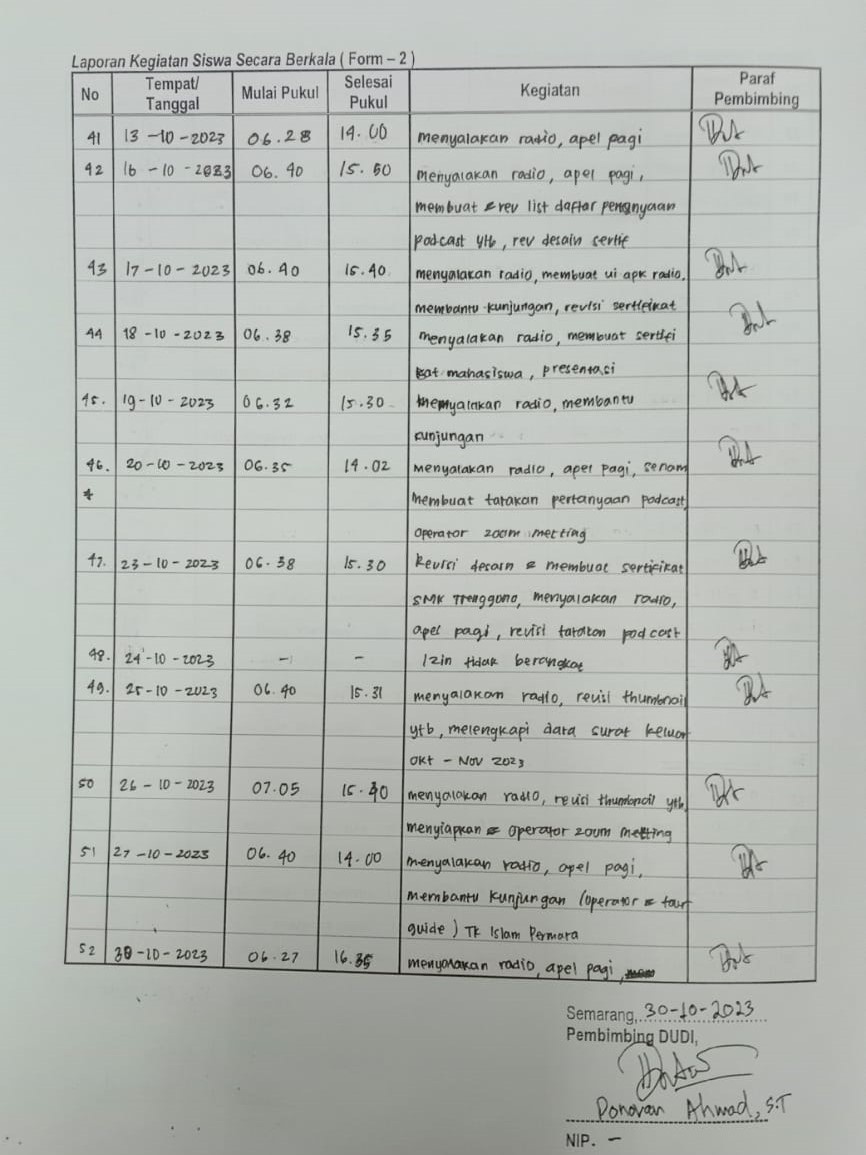 Laporan Kegiatan Siswa Secara Berkala ( Form – 2 )
No Tempat/ Tanggal Mulai Pukul Selesai Pukul Kegiatan Paraf Pembimbing
41 13 -10 -2023 06.28 14.00 menyalakan radio, apel pagi
42 16 -10 -2023 06.40 15.50 menyalakan radio, apel pagi,
membuat & rev list daftar
podcast ytb, rev desain sertif
43 17-10-2023 06.40 15.40 menyalakan radio, membuat ui apk radio,
membantu kunjungan, revisi sertifikat
44 18-10-2023 06.38 15.35 menyalakan radio, membuat sertifi
kat mahasiswa, presentasi
45. 19-10-2023 06.32 15.30 menyalakan radio, membantu
kunjungan
46. 20-10-2023 06.35 14.02 menyalakan radio, apel pagi, senam
membuat tatakan pertanyaan podcast,
operator zoom metting
47. 23-10-2023 06.38 15.30 Revisi desain & membuat sertifikat
SMK Trenggono, menyalakan radio,
apel pagi, revisi tatakan podcast
48. 24-10-2023 - - Izin tidak berangkat
49. 25-10-2023 06.40 15.31 menyalakan radio, revisi thumbnail
ytb, melengkapi data surat keluar
okt - Nov 2023
50 26-10-2023 07.05 15.40 menyalakan radio, revisi thumbnail ytb,
menyiapkan & operator zoom metting
51 27-10-2023 06.40 14.00 menyalakan radio, apel pagi,
membantu kunjungan (operator & tour
guide) TK Islam Permata
52 30-10-2023 06.27 16.35 menyalakan radio, apel pagi,
Semarang, 30-10-2023
Pembimbing DUDI,
Donovan Ahmad, S.T
NIP. –